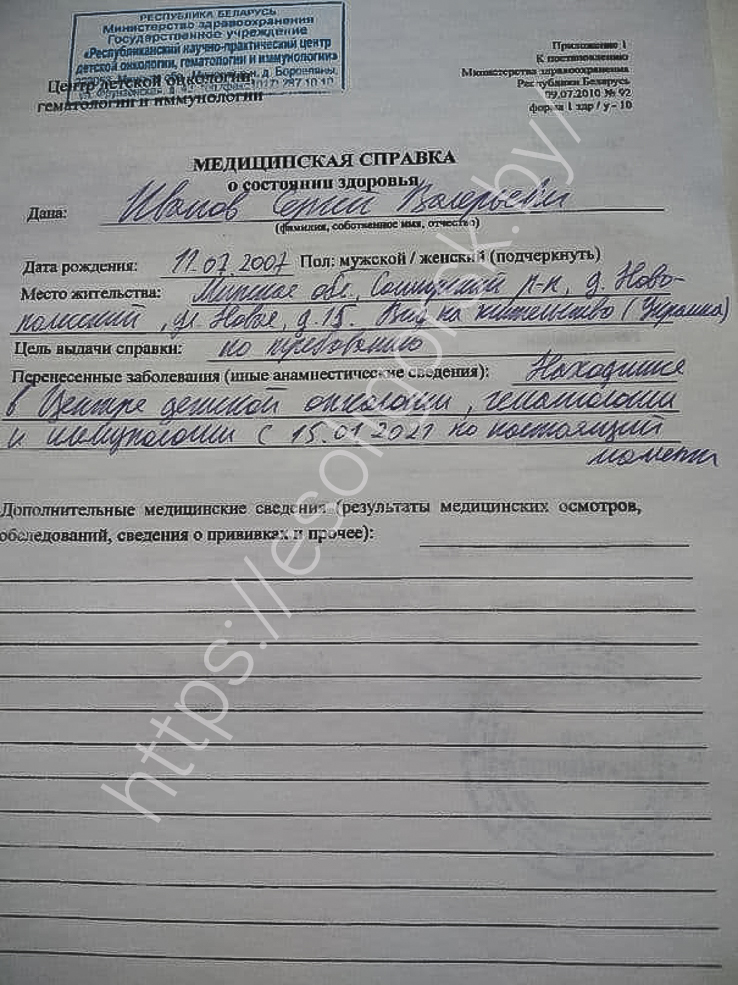 РЕСПУБЛИКА БЕЛАРУСЬ
Министерство здравоохранения
Государственное учреждение
«Республиканский научно-практический центр
детской онкологии, гематологии и иммунологии»
д. Боровляны,
287 10 10
Центр детской онкологии
гематологии и иммунологии
Приложение 1
К постановлению
Министерства здравоохранения
Республики Беларусь
09.07.2010 № 92
форма 1 здр / у - 10
МЕДИЦИНСКАЯ СПРАВКА
о состоянии здоровья
Дана: Иванов Сергей Валерьевич
(фамилия, собственное имя, отчество)
Дата рождения: 11.07.2007 Пол: мужской / женский (подчеркнуть)
Место жительства: Минская обл., р-н, д. Ново-
полесский, ул. Новая, д.15. Вид на жительство (Украина)
Цель выдачи справки: по требованию
Перенесенные заболевания (иные анамнестические сведения): Находится
в Центре детской онкологии, гематологии
и иммунологии с 15.01.2021 по настоящий
момент
Дополнительные медицинские сведения (результаты медицинских осмотров,
обследований, сведения о прививках и прочее):
https://esoligorsk.by/